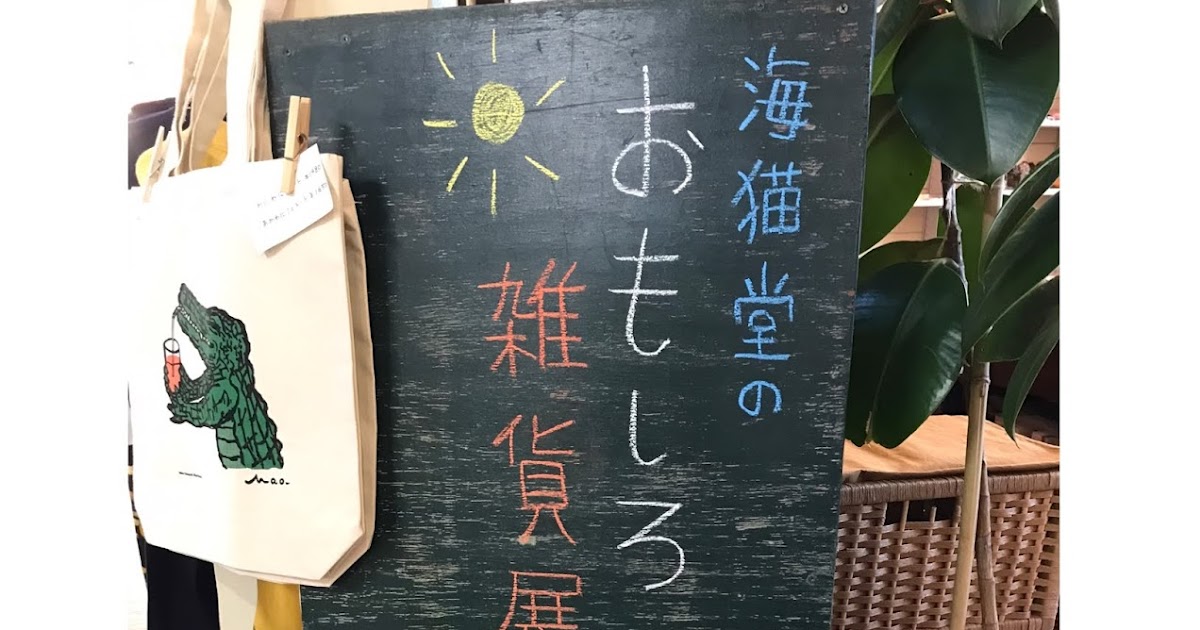 海猫堂の
おもしろ
雑貨展
Mao.